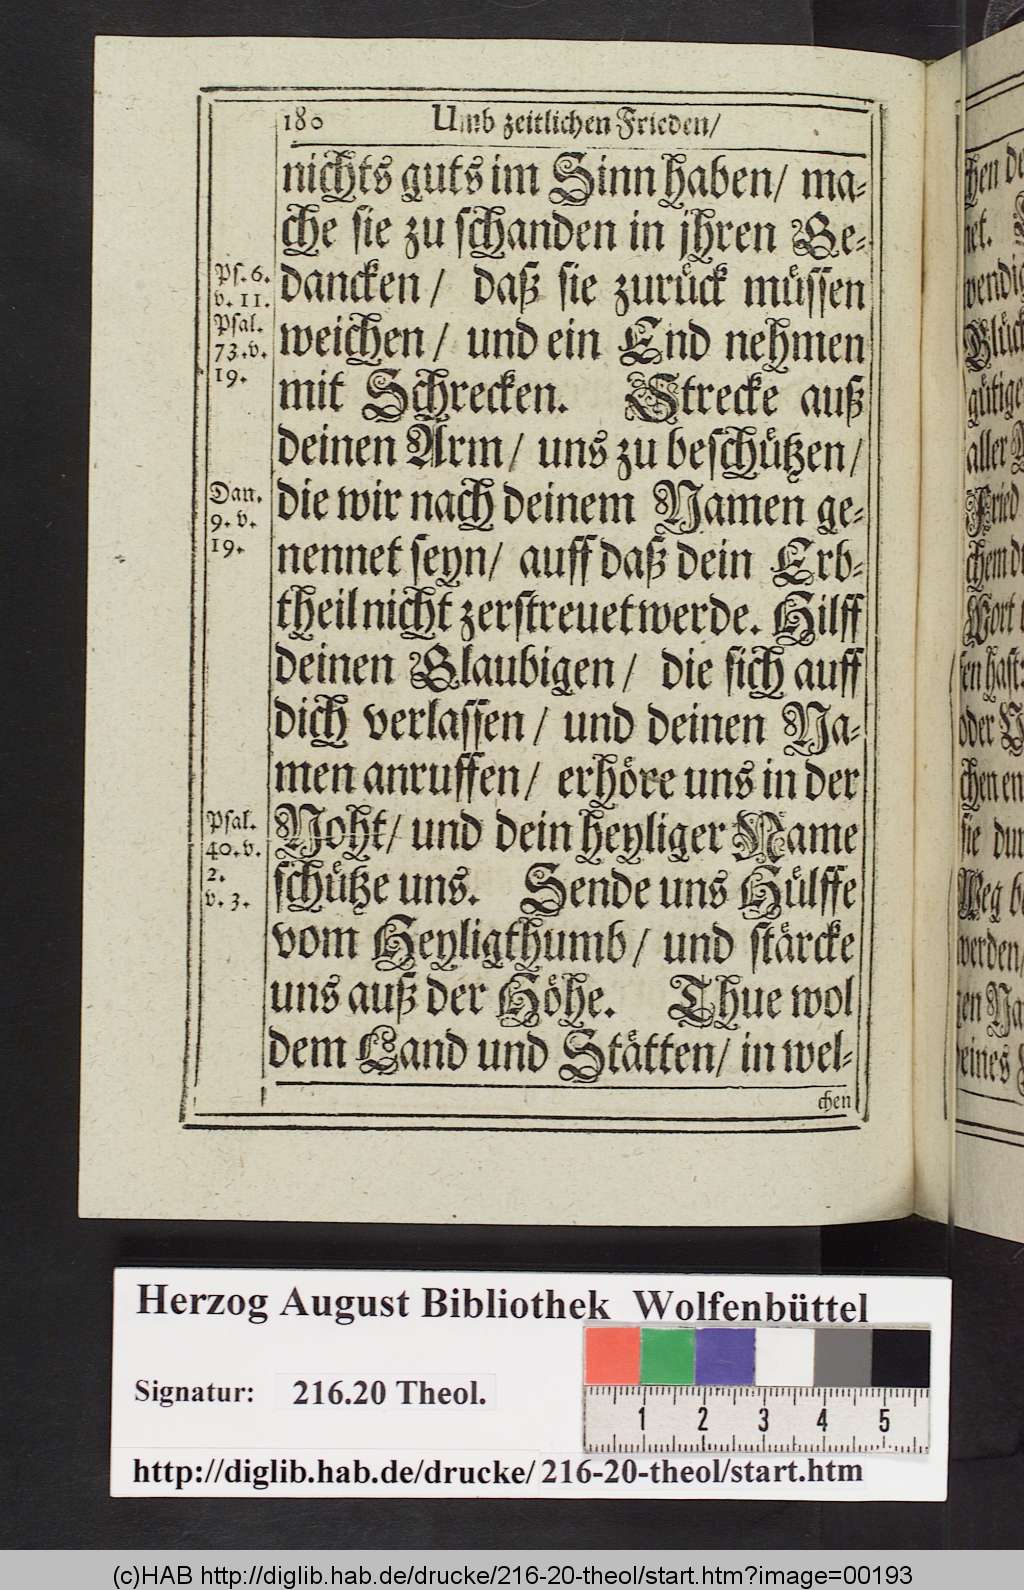 180 Umb zeitlichen Frieden/
nichts guts im Sinn haben/ ma-
che sie zu schanden in jhren Ge-
dancken/ daß sie zurück müssen
weichen/ und ein End nehmen
mit Schrecken. Strecke auß
deinen Arm/ uns zu beschützen/
die wir nach deinem Namen ge-
nennet seyn/ auff daß dein Erb-
theil nicht zerstreuet werde. Hilff
deinen Glaubigen/ die sich auff
dich verlassen/ und deinen Na-
men anruffen/ erhöre uns in der
Noht/ und dein heyliger Name
schütze uns. Sende uns Hülffe
vom Heyligthumb/ und stärcke
uns auß der Höhe. Thue wol
dem Land und Stätten/ in wel-
chen
Ps. 6.
v. 11.
Psal.
73. v.
19.
Dan.
9. v.
19.
Psal.
40. v.
2.
v. 3.
chen
net.
wendig
Glück
gütige
aller
Fried
chem
Wort
sen hast
oder
chen en
sie dur
Weg
werden/
nen Na
deines
Herzog August Bibliothek Wolfenbüttel
Signatur: 216.20 Theol.
1 2 3 4 5
http://diglib.hab.de/drucke/216-20-theol/start.htm
(c)HAB http://diglib.hab.de/drucke/216-20-theol/start.htm?image=00193